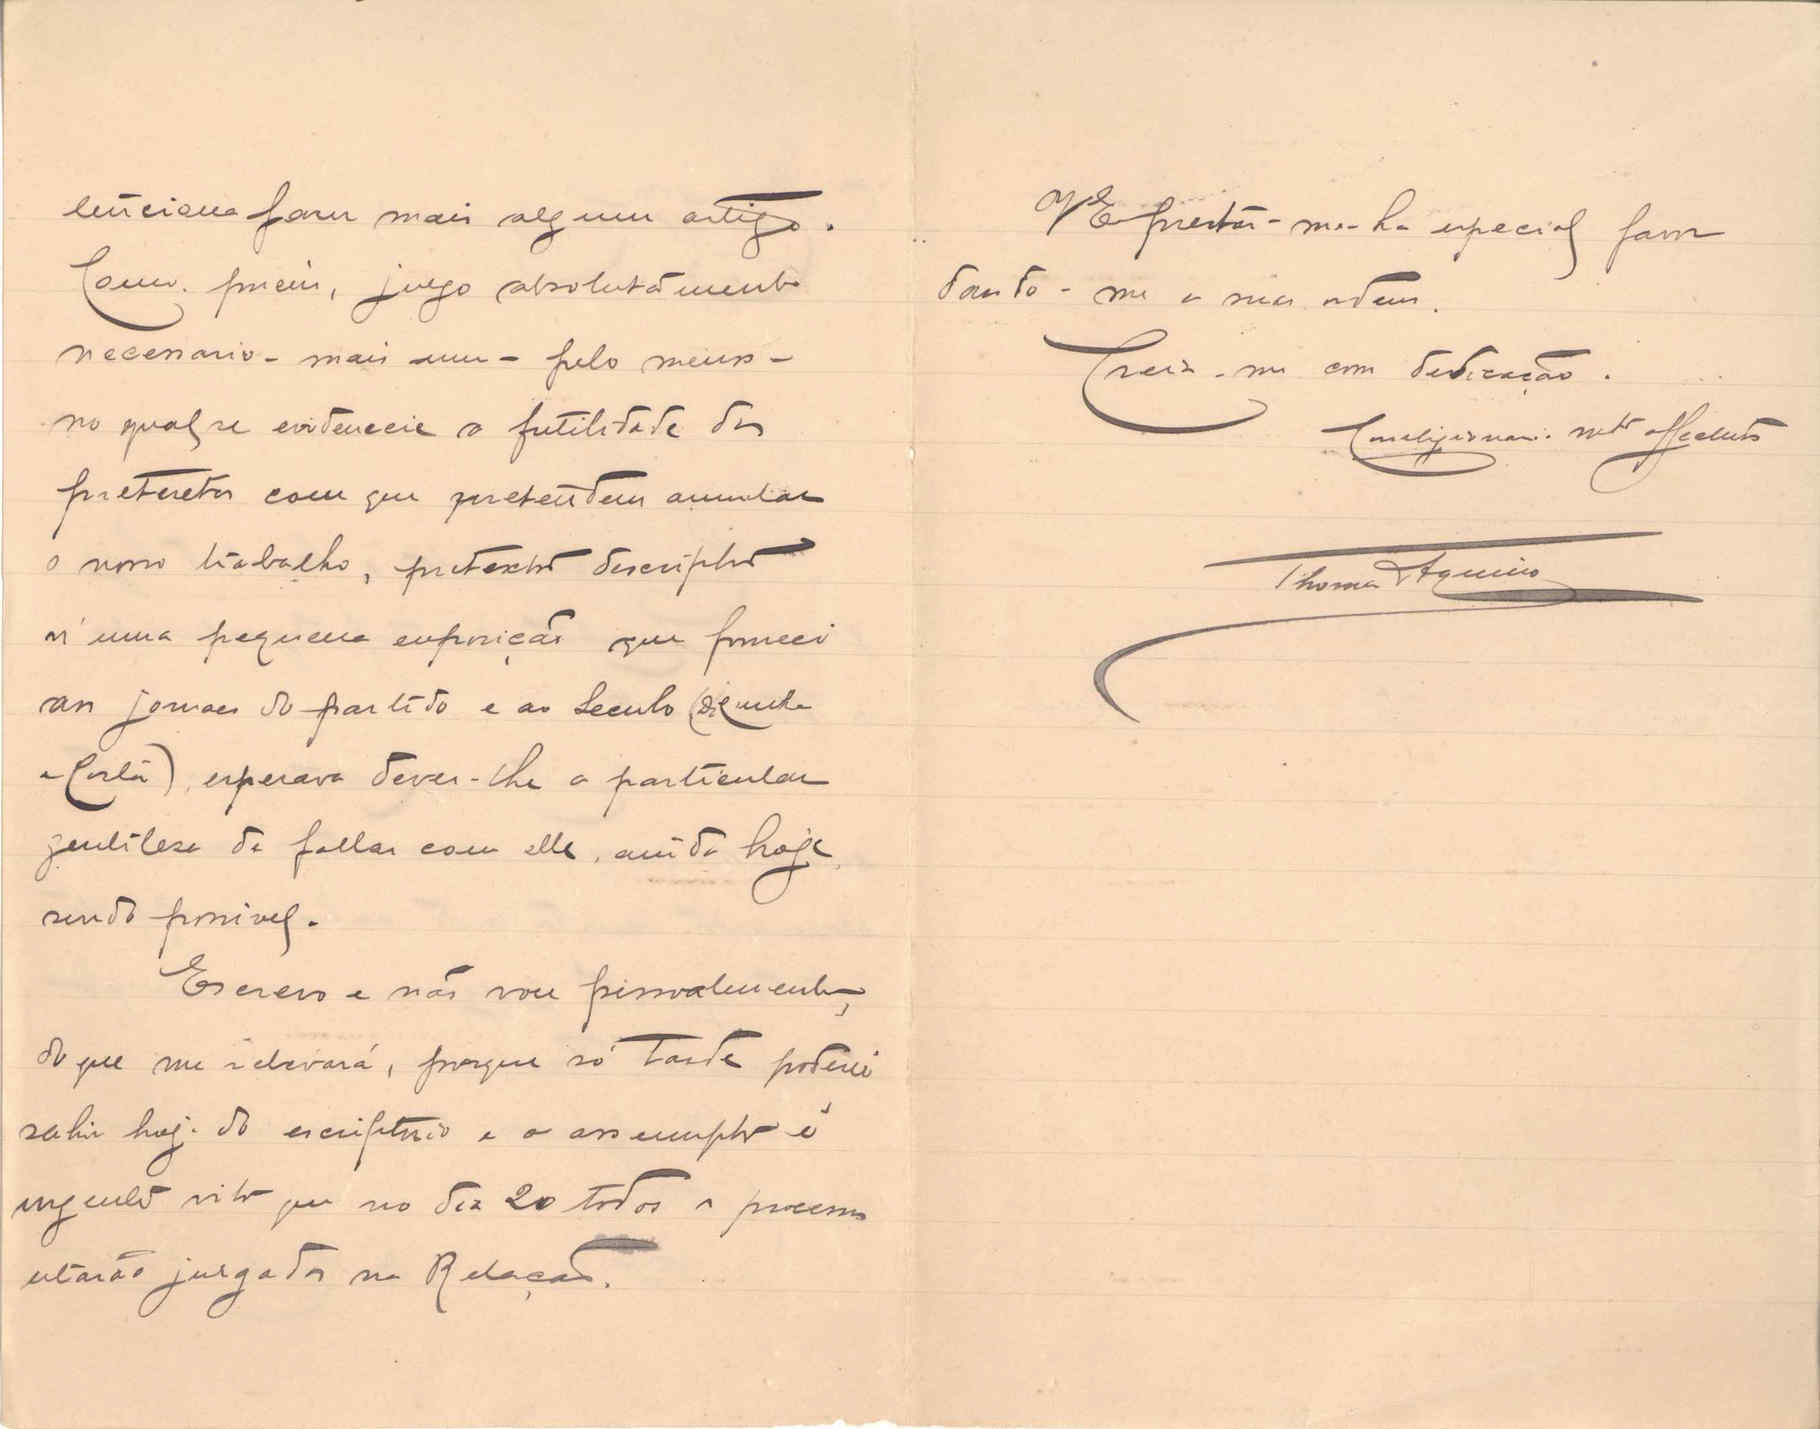 tencionava fazer mais algum artigo.
Como, porém, julgo absolutamente
necessario - mais um - pelo menos -
no qual se evidenceie a futilidade dos
pretextos com que pretendem annular
o nosso trabalho, pretextos descriptos
n'uma pequena exposição que forneci
aos jornaes do partido e ao Seculo (
e Costa), esperava dever-lhe a particular
gentileza de fallar com elle, ainda hoje
sendo possivel.
Escrevo e não vou pessoalmente,
do que me relevará, porque só tarde poderei
sahir hoje do escriptorio e o assumpto é
urgente visto que no dia 20 todos os processos
estarão julgados na Relação.
V Ex prestar-me-ha especial favor
dando-me as suas ordens.
Creia-me com dedicação.
Correligionario mto affectuoso
Thomaz d'Aquino